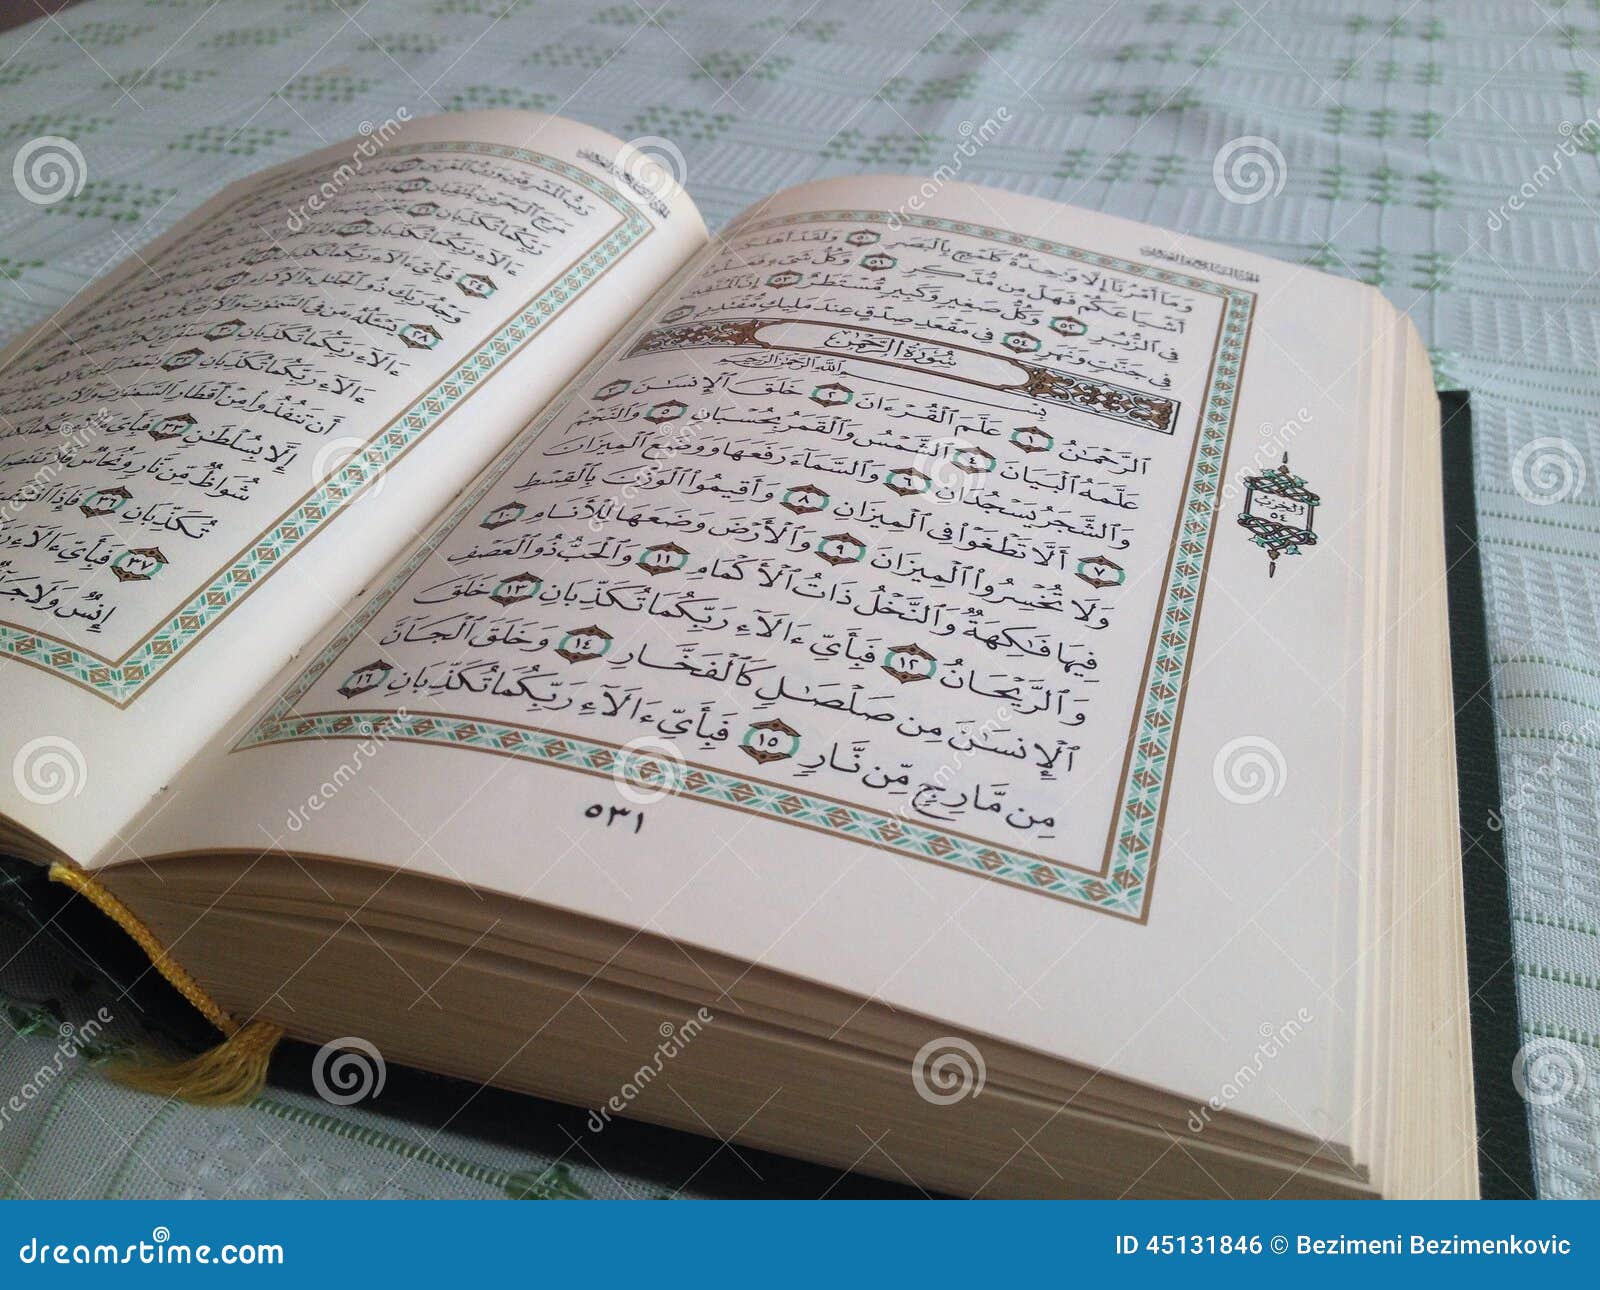 وَمَآ أَمْرُنَآ إِلَّا وَٰحِدَةٌ كَلَمْحٍۭ بِٱلْبَصَرِ ٥٠ وَلَقَدْ أَهْلَكْنَآ
أَشْيَاعَكُمْ فَهَلْ مِن مُّدَّكِرٍ ٥١ وَكُلُّ شَىْءٍ فَعَلُوهُ
فِى ٱلزُّبُرِ ٥٢ وَكُلُّ صَغِيرٍ وَكَبِيرٍ مُّسْتَطَرٌ ٥٣ إِنَّ ٱلْمُتَّقِينَ
فِى جَنَّٰتٍ وَنَهَرٍ ٥٤ فِى مَقْعَدِ صِدْقٍ عِندَ مَلِيكٍ مُّقْتَدِرٍۭ ٥٥
سُورَةُ الرَّحْمٰن
بِسْمِ ٱللَّهِ ٱلرَّحْمَٰنِ ٱلرَّحِيمِ
ٱلرَّحْمَٰنُ ١ عَلَّمَ ٱلْقُرْءَانَ ٢ خَلَقَ ٱلْإِنسَٰنَ ٣
عَلَّمَهُ ٱلْبَيَانَ ٤ ٱلشَّمْسُ وَٱلْقَمَرُ بِحُسْبَانٍ ٥ وَٱلنَّجْمُ
وَٱلشَّجَرُ يَسْجُدَانِ ٦ وَٱلسَّمَآءَ رَفَعَهَا وَوَضَعَ ٱلْمِيزَانَ
٧ أَلَّا تَطْغَوْا۟ فِى ٱلْمِيزَانِ ٨ وَأَقِيمُوا۟ ٱلْوَزْنَ بِٱلْقِسْطِ
وَلَا تُخْسِرُوا۟ ٱلْمِيزَانَ ٩ وَٱلْأَرْضَ وَضَعَهَا لِلْأَنَامِ ١٠
فِيهَا فَٰكِهَةٌ وَٱلنَّخْلُ ذَاتُ ٱلْأَكْمَامِ ١١ وَٱلْحَبُّ ذُو ٱلْعَصْفِ
وَٱلرَّيْحَانُ ١٢ فَبِأَىِّ ءَالَآءِ رَبِّكُمَا تُكَذِّبَانِ ١٣ خَلَقَ
ٱلْإِنسَٰنَ مِن صَلْصَٰلٍ كَٱلْفَخَّارِ ١٤ وَخَلَقَ ٱلْجَآنَّ
مِن مَّارِجٍ مِّن نَّارٍ ١٥ فَبِأَىِّ ءَالَآءِ رَبِّكُمَا تُكَذِّبَانِ ١٦
٥٣١
الحزب
٥٤
رَبُّ ٱلْمَشْرِقَيْنِ وَرَبُّ ٱلْمَغْرِبَيْنِ
مَرَجَ ٱلْبَحْرَيْنِ يَلْتَقِيَانِ ١٩
رَبِّكُمَا تُكَذِّبَانِ ٢١
ءَالَآءِ رَبِّكُمَا تُكَذِّبَانِ
٢٤ فَبِأَىِّ ءَالَآءِ رَبِّكُمَا تُكَذِّبَانِ
وَجْهُ رَبِّكَ ذُو ٱلْجَلَٰلِ وَٱلْإِكْرَامِ
٢٨ يَسْـَٔلُهُۥ مَن فِى ٱلسَّمَٰوَٰتِ وَٱلْأَرْضِ
ءَالَآءِ رَبِّكُمَا تُكَذِّبَانِ
ءَالَآءِ رَبِّكُمَا تُكَذِّبَانِ
أَن تَنفُذُوا۟ مِنْ أَقْطَارِ ٱلسَّمَٰوَٰتِ وَٱلْأَرْضِ
إِلَّا بِسُلْطَٰنٍ ٣٣ فَبِأَىِّ ءَالَآءِ رَبِّكُمَا
شُوَاظٌ مِّن نَّارٍ وَنُحَاسٌ فَلَا
تُكَذِّبَانِ ٣٦ فَإِذَا
٣٧ فَبِأَىِّ ءَالَآءِ
إِنسٌ وَلَا
dreamstime.com
ID 45131846 © Bezimeni Bezimenkovic